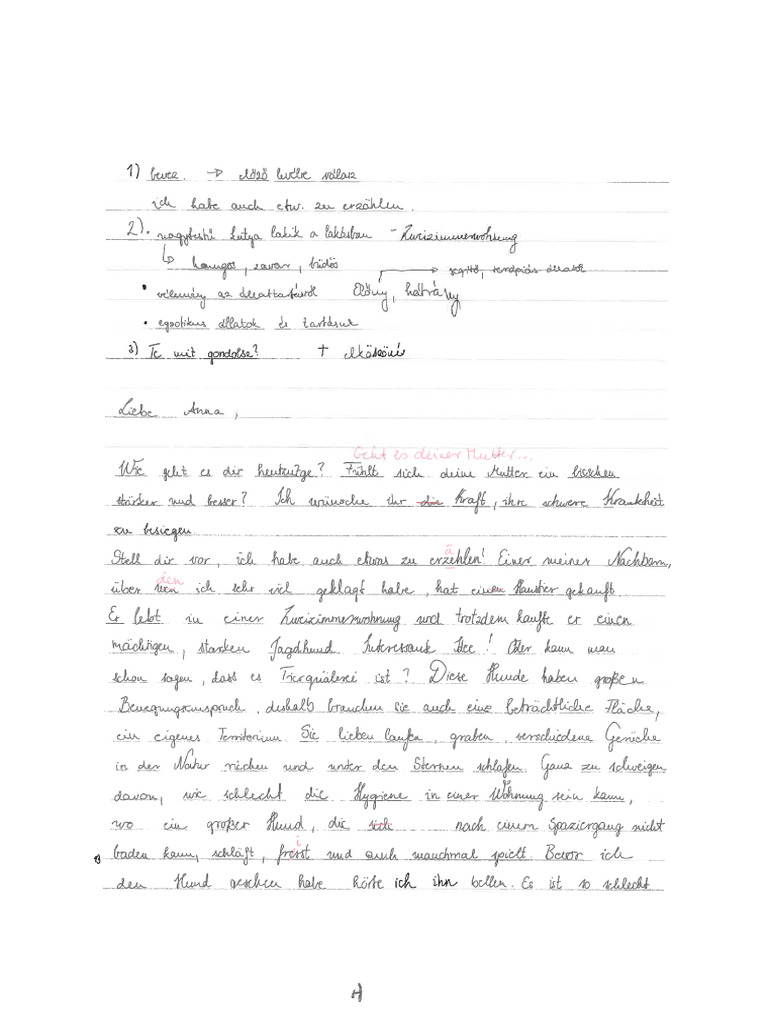 1) bevez. → előző levélre válasz
ich habe auch etw. zu erzählen.
2) • nagytestű kutya lakik a lakásban - Zweizimmerwohnung
↳ hangos, zavar, büdös → segítő, terápiás állatok
• vélemény az állattartásról Előny, hátrány
• egzotikus állatok és tartásuk
3) Te mit gondolsz? + elköszönés
Liebe Anna,
Geht es deiner Mutter...
Wie geht es dir heutzutge? Fühlt sich deine Mutter ein bisschen
stärker und besser? Ich wünsche ihr die Kraft, ihre schwere Krankheit
zu besiegen
ä
Stell dir vor, ich habe auch etwas zu erzehlen! Einer meiner Nachbarn,
den
über wen ich sehr viel geklagt habe, hat einen Haustier gekauft.
Er lebt in einer Zweizimmerwohnung und trotzdem kaufte er einen
mächtigen, starken Jagdhund. Interessante Idee! Oder kann man
schon sagen, dass es Tierquälerei ist? Diese Hunde haben großen
Bewegungsanspruch, deshalb brauchen sie auch eine beträchtliche Fläche,
ein eigenes Territorium. Sie lieben laufen, graben, verschiedene Gerüche
in der Natur riechen und unter den Sternen schlafen. Ganz zu schweigen
davon, wie schlecht die Hygiene in einer Wohnung sein kann,
wo ein großer Hund, die sich nach einem Spaziergang nicht
i
baden kann, schläft, fresst und auch manchmal spielt. Bevor ich
den Hund gesehen habe hörte ich ihn bellen. Es ist so schlecht